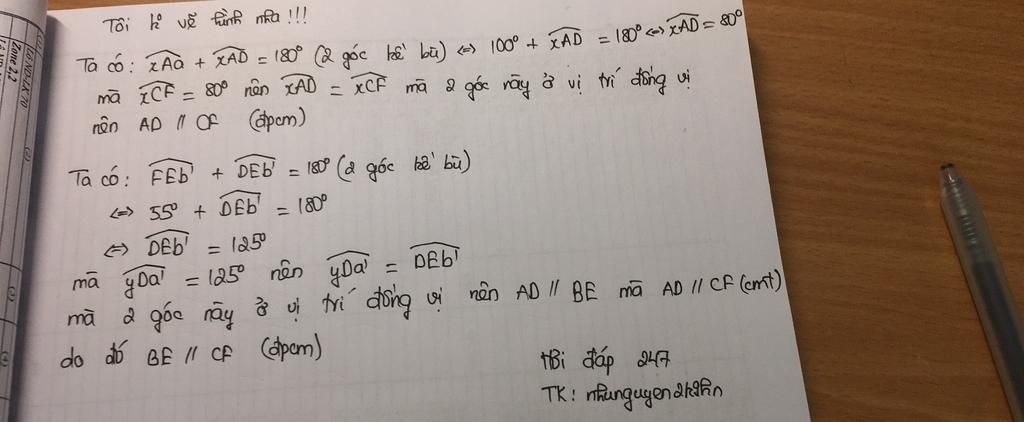 Tôi k vẽ hình nha !!!
Ta có: xAa + xAD = 180° (2 góc kề bù) ⇔ 100° + xAD = 180° ⇔ xAD = 80°
mà xCF = 80° nên xAD = xCF mà 2 góc này ở vị trí đồng vị
nên AD // CF (đpcm)
Ta có: FEb' + DEb' = 180° (2 góc kề bù)
⇔ 55° + DEb' = 180°
⇔ DEb' = 125°
mà yDa' = 125° nên yDa' = DEb'
mà 2 góc này ở vị trí đồng vị nên AD // BE mà AD // CF (cmt)
do đó BE // CF (đpcm)
Hỏi đáp 247
TK: nhunguyen2k9hn
Zone 2.2